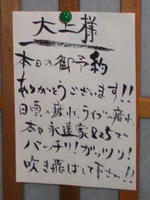 大上様
本日の御予約
ありがとうございます!!
日頃の疲れ、ライブの疲れ
本日永遠家825で
バッチリ!ガッツリ!
吹き飛ばして下さい!!